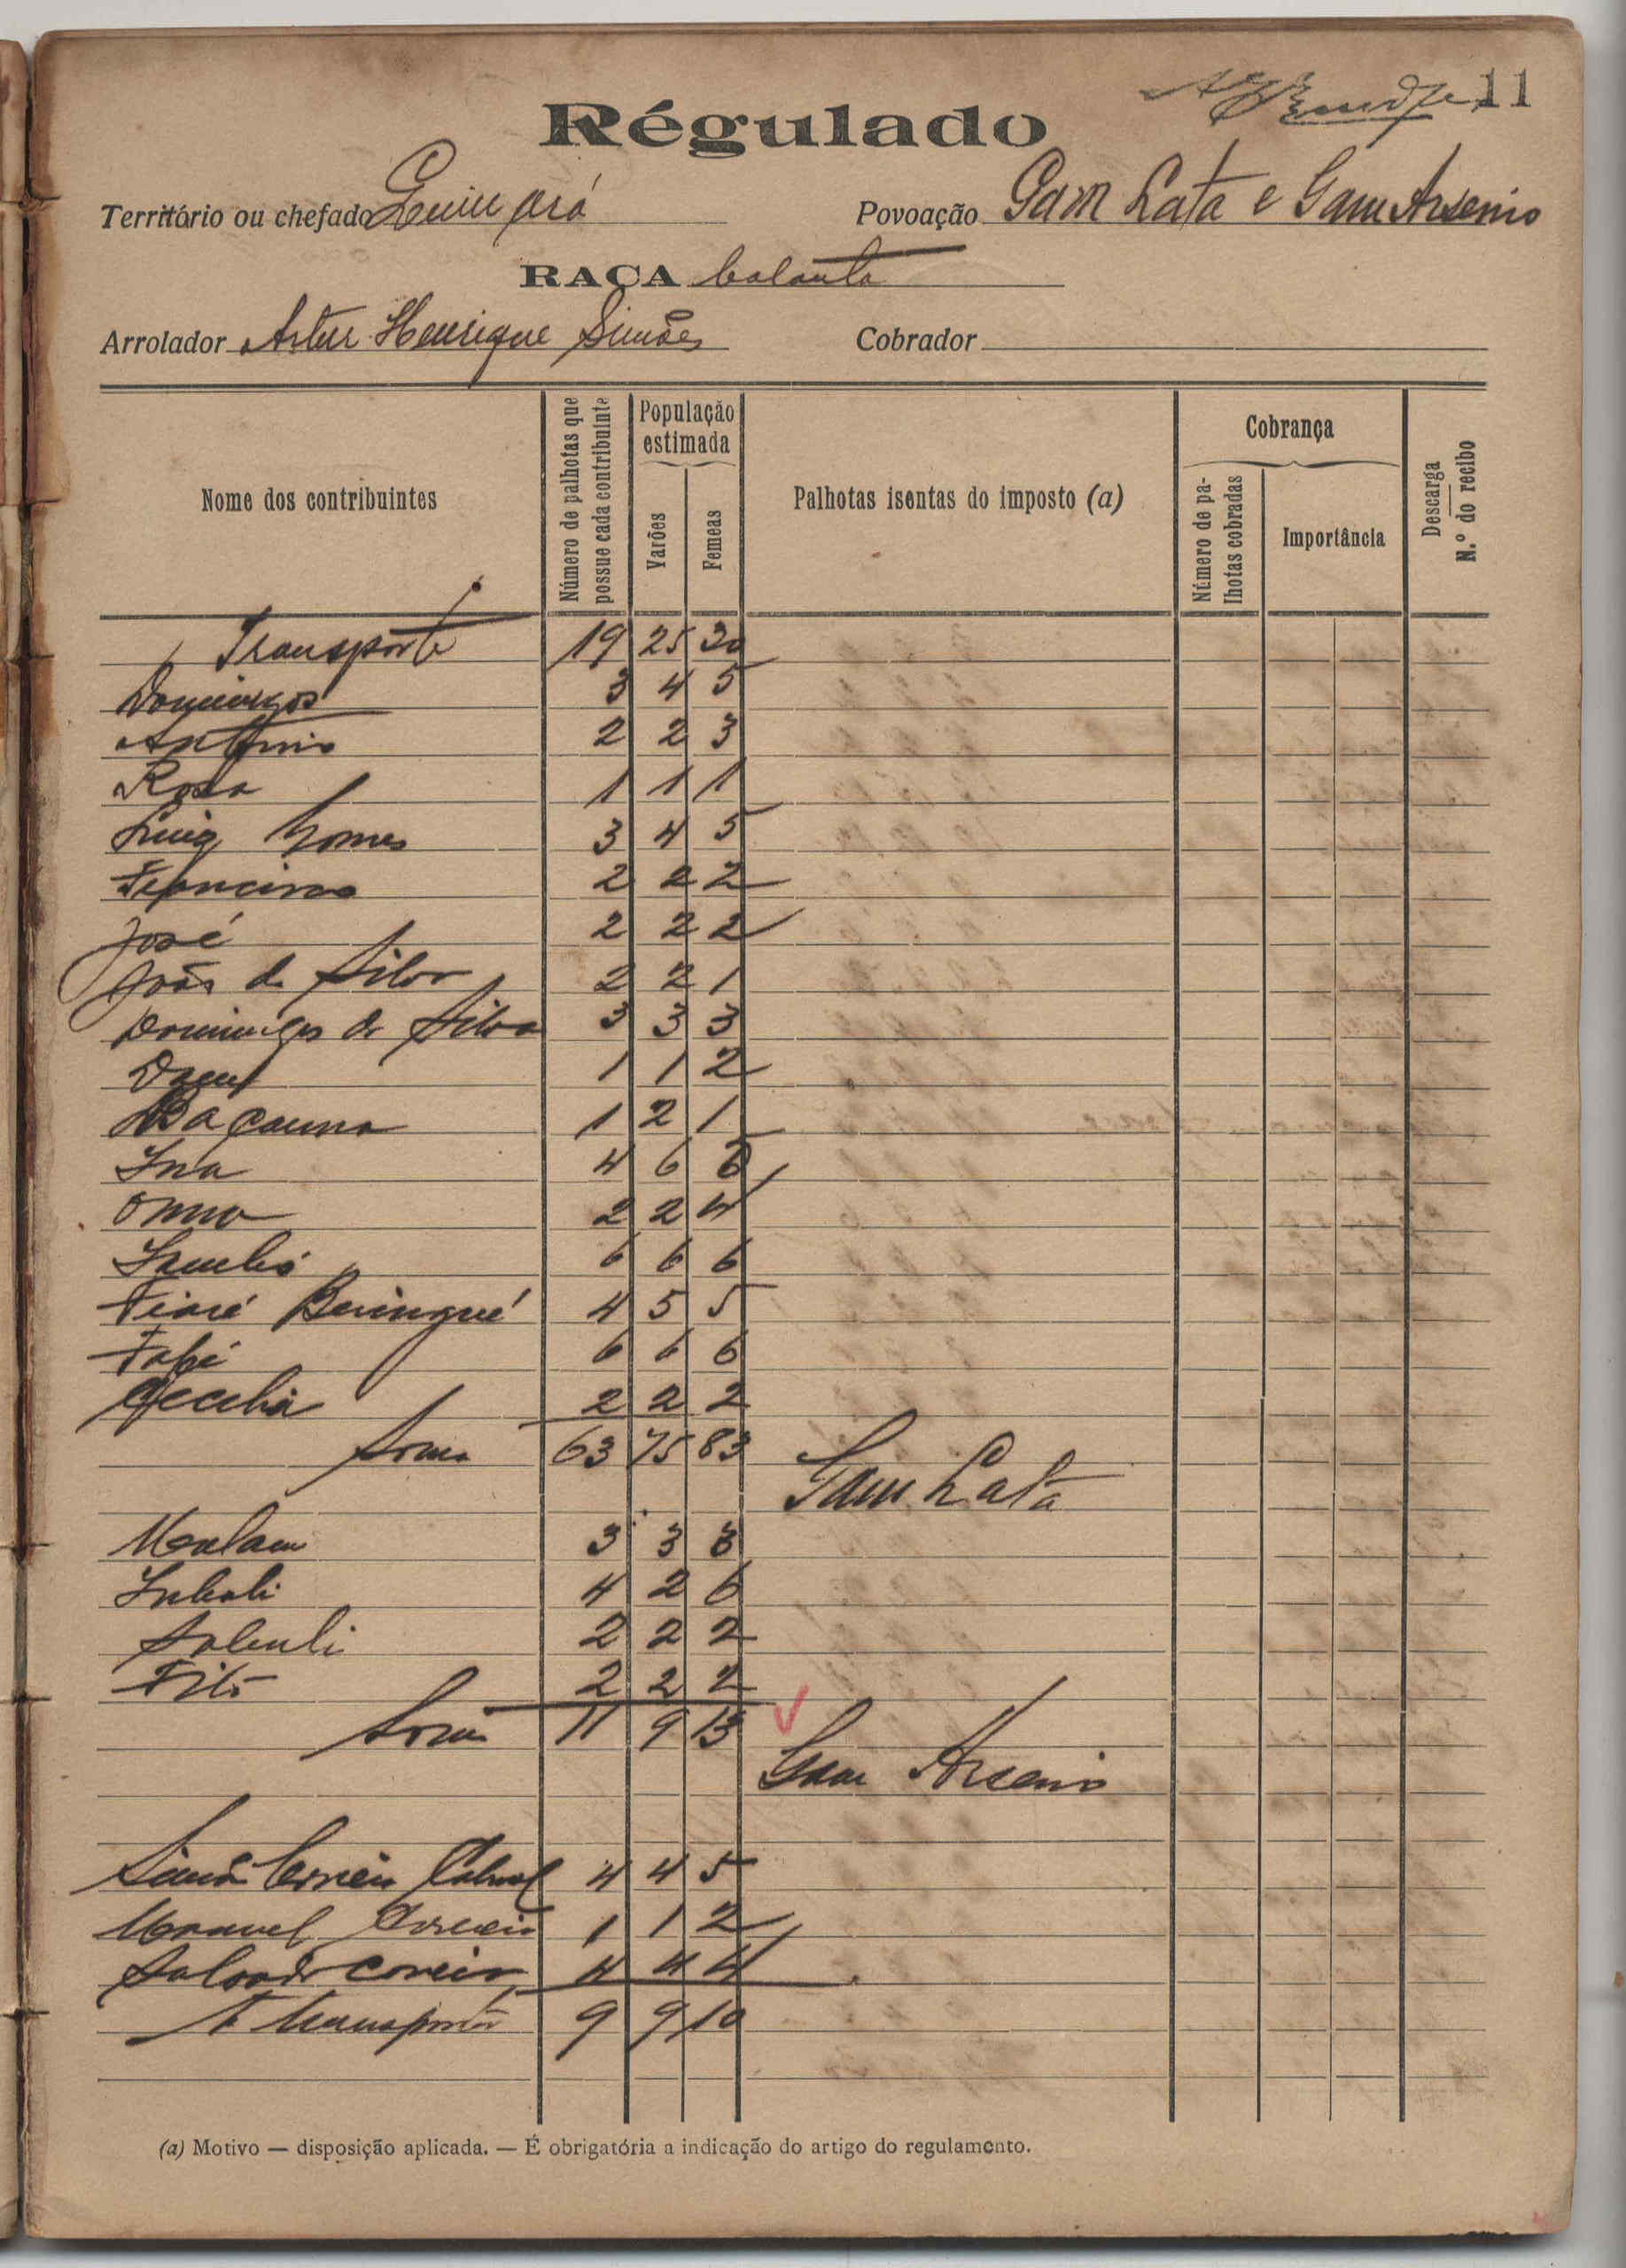 11
Régulado
Território ou chefado
Povoação Gam Lata e Gam Arsenio
RAÇA balanta
Arrolador Artur Henrique Simões Cobrador
Nome dos contribuintes
Número de palhotas que possue cada contribuinte
População estimada
Varões
Femeas
Palhotas isentas do imposto (a)
Cobrança
Número de palhotas cobradas
Importância
Descarga
N.º do recibo
Transporte 19 25 30
Domingos 3 4 5
António 2 2 3
Rosa 1 1 1
Luiz Gomes 3 4 5
Francisco 2 2 2
José 2 2 2
João da Silva 2 2 1
Domingos da Silva 3 3 3
1 1 2
1 2 1
Ina 4 6 6
2 2 4
6 6 6
4 5 5
6 6 6
Cecelia 2 2 2
Soma 63 75 83
Gam Lata
Malam 3 3 3
4 2 6
2 2 2
2 2 2
Soma 11 9 13
Gam Arsenio
Correia Cabral 4 4 5
Manuel Correia 1 1 2
Salvador Correia 4 4 4
A transportar 9 9 10
(a) Motivo — disposição aplicada. — É obrigatória a indicação do artigo do regulamento.